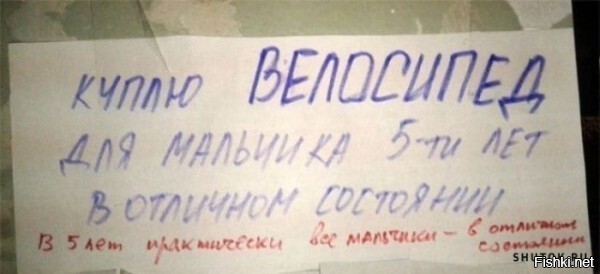 куплю ВЕЛОСИПЕД
ДЛЯ МАЛЬЧИКА 5-ти ЛЕТ
В ОТЛИЧНОМ СОСТОЯНИИ
В 5 лет практически все мальчики – в отличном
состоянии
SHUTOK.RU
Fishki.net